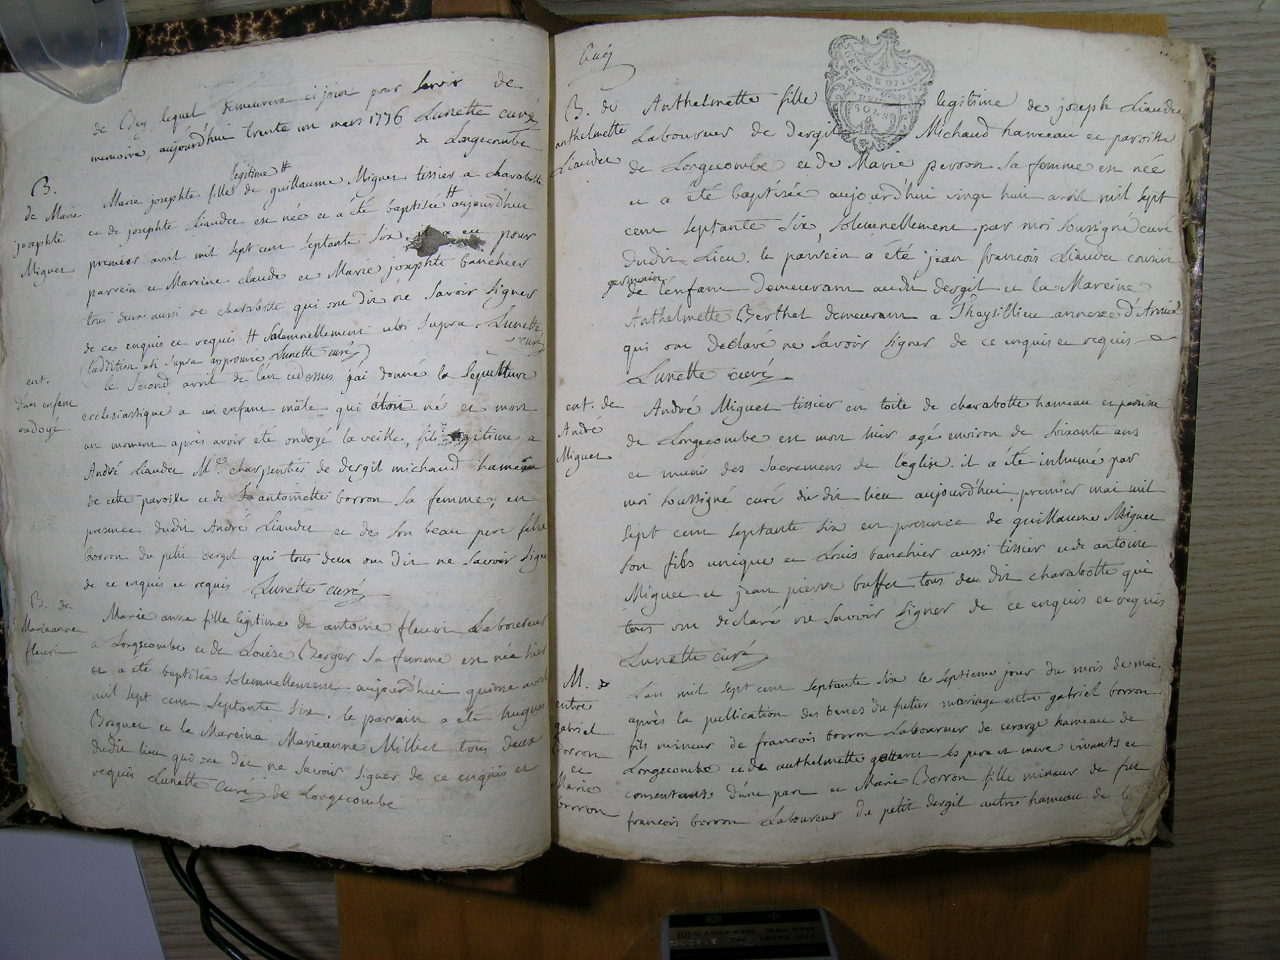 de Bey, lequel demeurera ci joint pour servir de
memoire, aujourd'hui trente un mars 1776 Lunette curé
de Longecombe
B.
de Marie
josephte
Miguet
legitime #
Marie josephte fille de guillaume Miguet tissier a charabotte
et de josephte Liaudet est née et a été baptisée # aujourd'hui
premier avril mil sept cent septante six, et a eu pour
parrein et Mareine claude et Marie josephte banchier
tous deux aussi de charabotte qui ont dit ne savoir signer
de ce enquis et requis # solemnellement ubi supra. Lunette
curé
(l'addition ubi supra approuvée Lunette curé)
ent.
d'un enfant
ondoyé
le second avril de l'an cidessus j'ai donné la sepulture
ecclesiastique a un enfant mâle qui étoit né et mort
un moment après avoir été ondoyé la veille, fils legitime a
André Liaudet M.e charpentier de dergil michaud hameau
de cette paroisse et de antoinette borron sa femme, en
presence dudit André Liaudet et de son beau pere felix
borron du petit dergil qui tous deux ont dit ne savoir signer
de ce enquis et requis Lunette curé
B. de
Marieanne
fleuri
Marie anne fille legitime de antoine fleuri Laboureur
a Longecombe et de Louise Berger sa femme est née hier
et a été baptisée solemnellement aujourd'hui quinze avril
mil sept cent septante six. le parrain a été hugues
Braguet et la Mareine Marieanne Milliet tous deux
dudit lieu qui ont dit ne savoir signer de ce enquis et
requis Lunette curé de Longecombe
B. de
anthelmette
Liaudet
Anthelmette fille legitime de joseph Liaudet
Laboureur de dergil Michaud hameau et paroisse
de Longecombe et de Marie perron sa femme est née
et a été baptisée aujourd'hui vingt huit avril mil sept
cent septante six, solemnellement par moi soussigné curé
dudit Lieu. le parrein a été jean françois Liaudet cousin
germain
de l'enfant demeurant audit dergil et la Mareine
Anthelmette Berthet demeurant a Thezillieu annexe d'Armix
qui ont declaré ne savoir signer de ce enquis et requis
Lunette curé
ent. de
André
Miguet
André Miguet tissier en toile de charabotte hameau et paroisse
de Longecombe est mort hier agé environ de soixante ans
et munis des sacremens de l'eglise. il a été inhumé par
moi soussigné curé dudit lieu aujourd'hui premier mai mil
sept cent septante six en presence de guillaume Miguet
son fils unique et Louis banchier aussi tissier et de antoine
Miguet et jean pierre buffet tous dudit charabotte qui
tous ont declaré ne savoir signer de ce enquis et requis
Lunette curé
M.
entre
gabriel
borron
et
Marie
borron
L'an mil sept cent septante six le septieme jour du mois de mai
après la publication des bancs du futur mariage entre gabriel borron
fils mineur de françois borron Laboureur de hameau de
Longecombe et de anthelmette ses pere et mere vivants et
consentants d'une part et Marie Borron fille mineur de feu
françois borron Laboureur du petit dergil autre hameau de